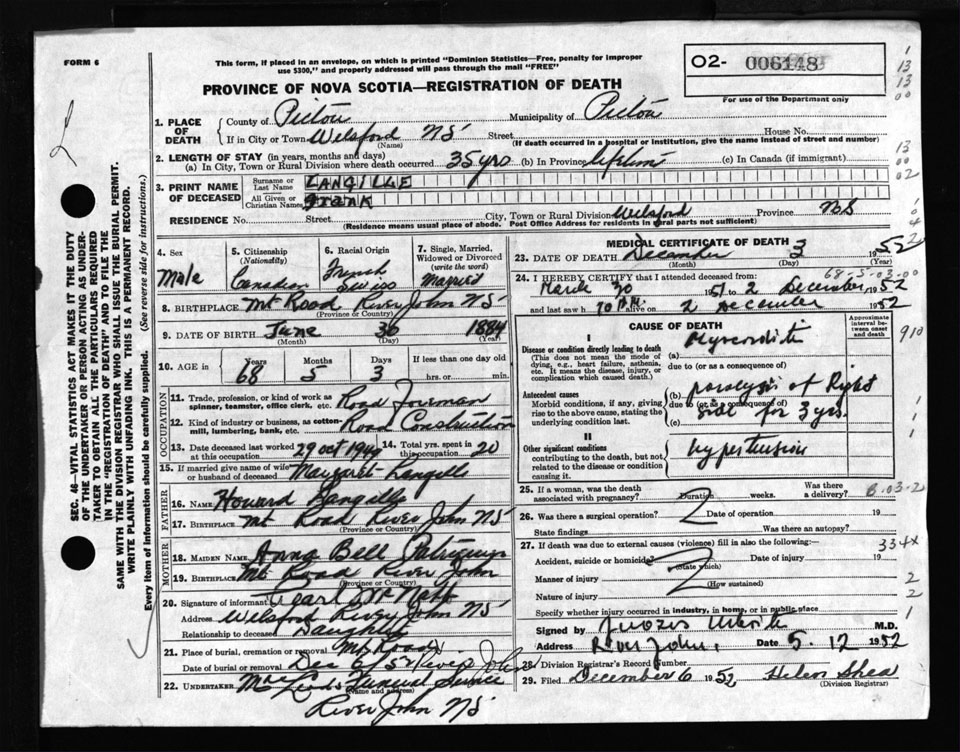 FORM 6
This form, if placed in an envelope, on which is printed "Dominion Statistics—Free, penalty for improper
use $300," and properly addressed will pass through the mail "FREE"
O2- 006148
For use of the Department only
PROVINCE OF NOVA SCOTIA—REGISTRATION OF DEATH
1. PLACE OF DEATH
County of Pictou Municipality of Pictou
If in City or Town Welsford NS Street House No.
(Name) (If death occurred in a hospital or institution, give the name instead of street and number)
2. LENGTH OF STAY (in years, months and days)
(a) In City, Town or Rural Division where death occurred 35 yrs (b) In Province lifetime (c) In Canada (if immigrant)
3. PRINT NAME OF DECEASED
Surname or Last Name LANGILLE
All Given or Christian Names Frank
RESIDENCE No. Street City, Town or Rural Division Welsford Province NS
(Residence means usual place of abode. Post Office Address for residents in rural parts not sufficient)
4. Sex Male
5. Citizenship (Nationality) Canadian
6. Racial Origin French Swiss
7. Single, Married, Widowed or Divorced (write the word) Married
8. BIRTHPLACE Mt Road River John NS
(Province or Country)
9. DATE OF BIRTH June 30 1884
(Month) (Day) (Year)
10. AGE in Years 68 Months 5 Days 3 If less than one day old hrs. or min.
OCCUPATION
11. Trade, profession, or kind of work as spinner, teamster, office clerk. etc. Road Foreman
12. Kind of industry or business, as cotton-mill, lumbering, bank, etc. Road Construction
13. Date deceased last worked at this occupation 29 oct 1949 14. Total yrs. spent in this occupation 20
15. If married give name of wife or husband of deceased Margaret Langille
FATHER
16. NAME Howard Langille
17. BIRTHPLACE Mt Road River John NS
(Province or Country)
MOTHER
18. MAIDEN NAME Anna Bell Patriquin
19. BIRTHPLACE Mt Road River John
(Province or Country)
20. Signature of informant Pearl
Address Welsford River John NS
Relationship to deceased Daughter
21. Place of burial, cremation or removal Mt Road
Date of burial or removal Dec 6/52 River John
22. UNDERTAKER MacLeod's Funeral Service
(Name and address)
River John NS
MEDICAL CERTIFICATE OF DEATH
23. DATE OF DEATH December 3 1952
(Month) (Day)
68-5-03-00
24. I HEREBY CERTIFY that I attended deceased from:
March 30 1951 to 2 December 1952
and last saw h alive on 2 December 1952
CAUSE OF DEATH
Approximate interval between onset and death
I
Disease or condition directly leading to death
(This does not mean the mode of dying, e.g., heart failure, asthenia, etc. It means the disease, injury, or complication which caused death.)
(a) Myocarditis
due to (or as a consequence of)
Antecedent causes
Morbid conditions, if any, giving rise to the above cause, stating the underlying condition last.
(b) paralysis of Right
due to (or as a consequence of)
side for 3 yrs.
(c)
II
Other significant conditions
contributing to the death, but not related to the disease or condition causing it.
hypertension
910
25. If a woman, was the death associated with pregnancy? Duration weeks. Was there a delivery?
26. Was there a surgical operation? Date of operation 19
State findings Was there an autopsy?
27. If death was due to external causes (violence) fill in also the following:—
334x
Accident, suicide or homicide? Date of injury 19
(State which)
Manner of injury
(How sustained)
Nature of injury
Specify whether injury occurred in industry, in home, or in public place
Signed by M.D.
Address River John. Date 5. 12 1952
28. Division Registrar's Record Number
29. Filed December 6 1952 Helen Shea
(Division Registrar)
SEC. 46—VITAL STATISTICS ACT MAKES IT THE DUTY
OF THE UNDERTAKER OR PERSON ACTING AS UNDER-
TAKER TO OBTAIN ALL THE PARTICULARS REQUIRED
IN THE "REGISTRATION OF DEATH" AND TO FILE THE
SAME WITH THE DIVISION REGISTRAR WHO SHALL ISSUE THE BURIAL PERMIT.
WRITE PLAINLY WITH UNFADING INK. THIS IS A PERMANENT RECORD.
Every item of information should be carefully supplied. (See reverse side for instructions.)